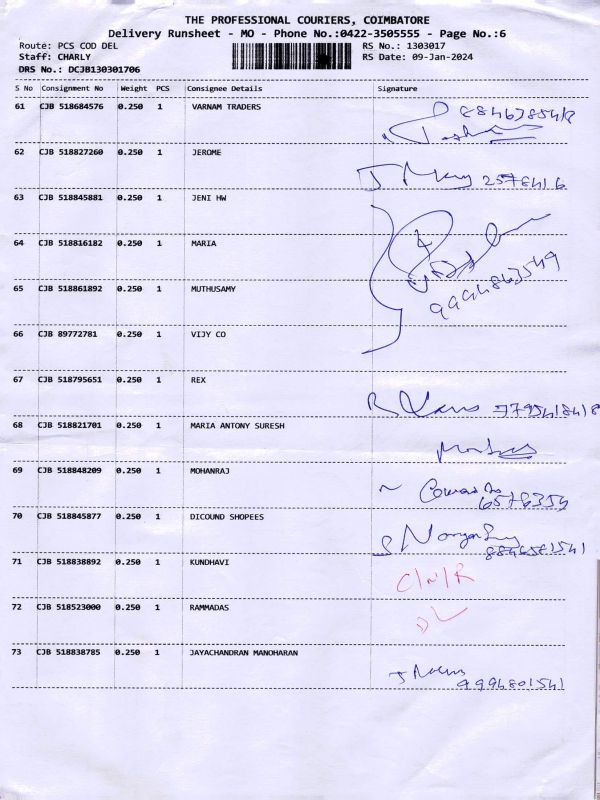 THE PROFESSIONAL COURIERS, COIMBATORE
Delivery Runsheet - MO - Phone No.:0422-3505555 - Page No.:6
Route: PCS COD DEL RS No.: 1303017
Staff: CHARLY RS Date: 09-Jan-2024
DRS No.: DCJB130301706
S No Consignment No Weight PCS Consignee Details Signature
61 CJB 518684576 0.250 1 VARNAM TRADERS
62 CJB 518827260 0.250 1 JEROME
63 CJB 518845881 0.250 1 JENI HW
64 CJB 518816182 0.250 1 MARIA
65 CJB 518861892 0.250 1 MUTHUSAMY
66 CJB 89772781 0.250 1 VIJY CO
67 CJB 518795651 0.250 1 REX
68 CJB 518821701 0.250 1 MARIA ANTONY SURESH
69 CJB 518848209 0.250 1 MOHANRAJ
70 CJB 518845877 0.250 1 DICOUND SHOPEES
71 CJB 518838892 0.250 1 KUNDHAVI C/N/R
72 CJB 518523000 0.250 1 RAMMADAS DL
73 CJB 518838785 0.250 1 JAYACHANDRAN MANOHARAN
9994801541